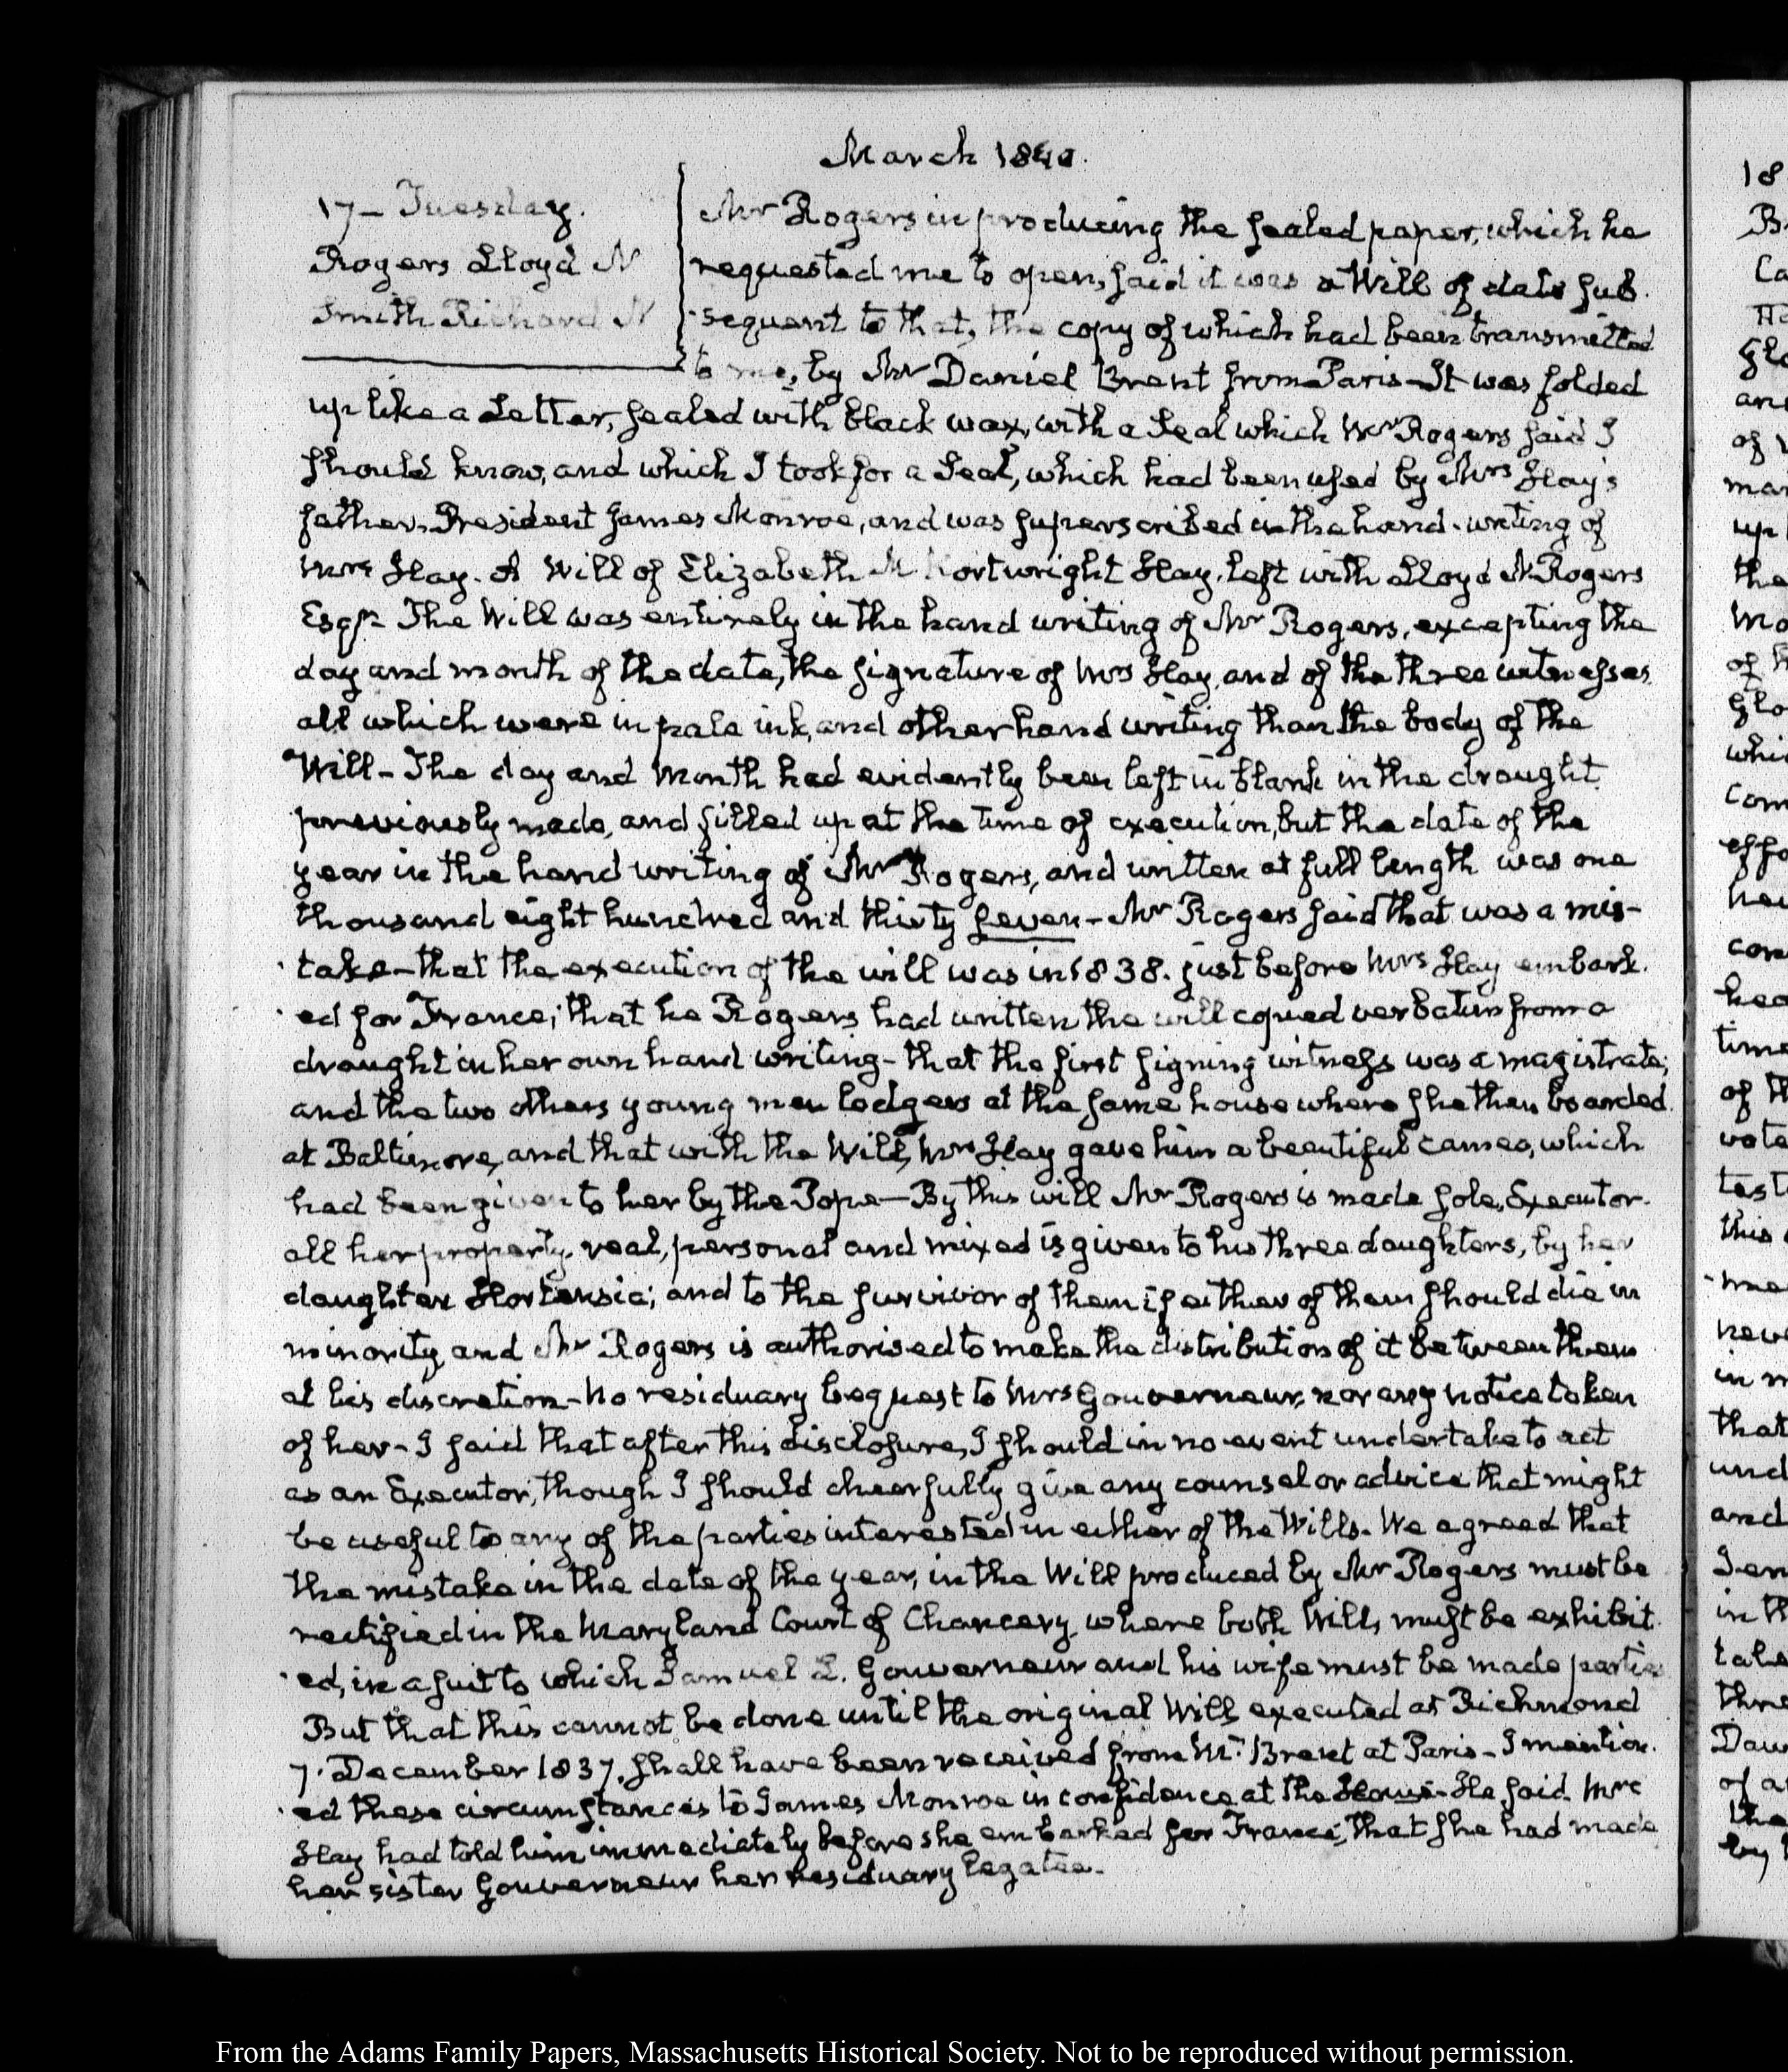 March 1840.
17 – Tuesday.
Rogers Lloyd N
Smith Richard N
Mr Rogers in producing the sealed paper, which he
requested me to open, said it was a Will of date sub-
-sequent to that, the copy of which had been transmitted
to me, by Mr Daniel Brent from Paris – It was folded
up like a Letter, sealed with black wax, with a Seal which Mr Rogers said I
should know, and which I took for a Seal, which had been used by Mrs Hay's
father, President James Monroe, and was superscribed in the hand-writing of
Mrs Hay. A Will of Elizabeth M Kortwright Hay, left with Lloyd N. Rogers
Esqr. The Will was entirely in the hand writing of Mr Rogers, excepting the
day and month of the date, the signature of Mrs Hay, and of the three witnesses,
all which were in pale ink, and other hand writing than the body of the
Will – The day and month had evidently been left in blank in the draught
previously made, and filled up at the time of execution, but the date of the
year in the hand writing of Mr Rogers, and written at full length was one
thousand eight hundred and thirty seven – Mr Rogers said that was a mis-
-take – that the execution of the will was in 1838. just before Mrs Hay embark-
-ed for France; that he Rogers had written the will copied verbatim from a
draught in her own hand writing – that the first signing witness was a magistrate;
and the two others young men lodgers at the same house where she then boarded
at Baltimore, and that with the Will, Mrs Hay gave him a beautiful cameo, which
had been given to her by the Pope – By this will Mr Rogers is made sole, Executor.
all her property, real, personal and mixed is given to his three daughters, by her
daughter Hortensia; and to the survivor of them if either of them should die in
minority, and Mr Rogers is authorised to make the distribution of it between them
at his discretion – No residuary bequest to Mrs Gouverneur, nor any notice taken
of her – I said that after this disclosure, I should in no event undertake to act
as an Executor, though I should cheerfully give any counsel or advice that might
be useful to any of the parties interested in either of the Wills. We agreed that
the mistake in the date of the year, in the Will produced by Mr Rogers must be
rectified in the Maryland Court of Chancery, where both Wills, must be exhibit-
-ed, in a suit to which Samuel L. Gouverneur and his wife must be made parties
But that this cannot be done until the original Will, executed at Richmond
7. December 1837. shall have been received from Mr. Brent at Paris – I mention-
-ed these circumstances to James Monroe in confidence at the House. He said Mrs
Hay had told him immediately before she embarked for France, that she had made
her sister Gouverneur her residuary legatee.
18
From the Adams Family Papers, Massachusetts Historical Society. Not to be reproduced without permission.